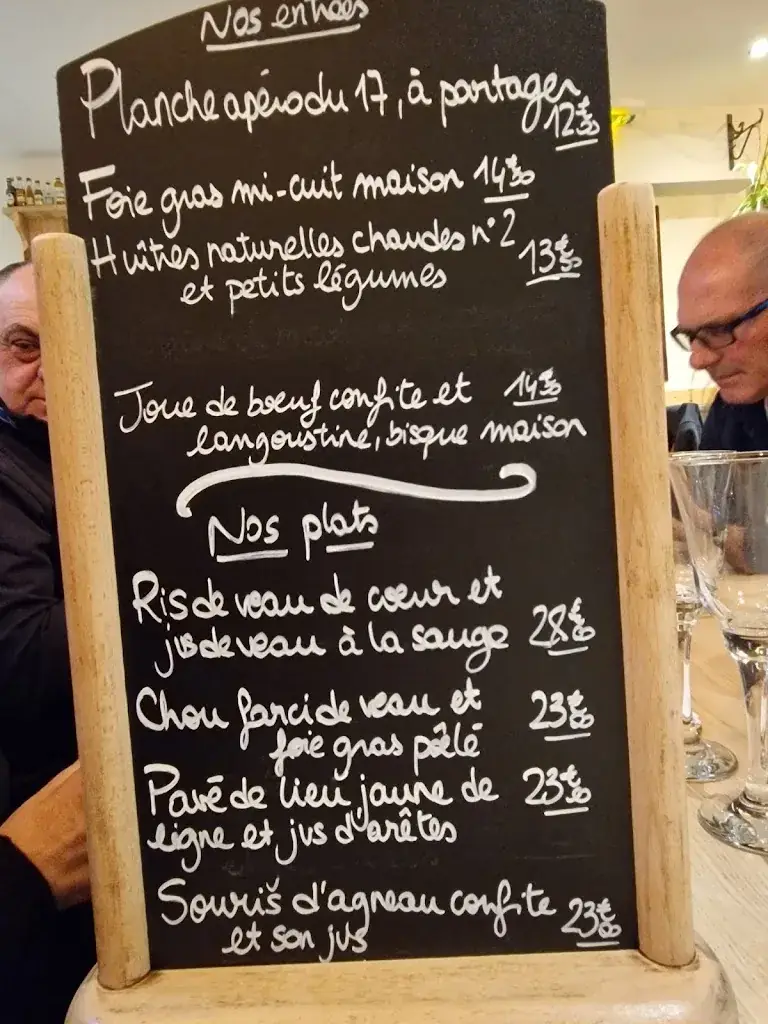 Nos entrées
Planche apéro du 17, à partager
12€50
Foie gras mi-cuit maison 14€50
Huîtres naturelles chaudes n°2
et petits légumes 13€50
Joue de bœuf confite et 14€50
langoustine, bisque maison
Nos plats
Ris de veau de cœur et
jus de veau à la sauge 28€50
Chou farci de veau et 23€50
foie gras pôêlé
Pavé de lieu jaune de 23€50
ligne et jus d'arêtes
Souris d'agneau confite 23€50
et son jus